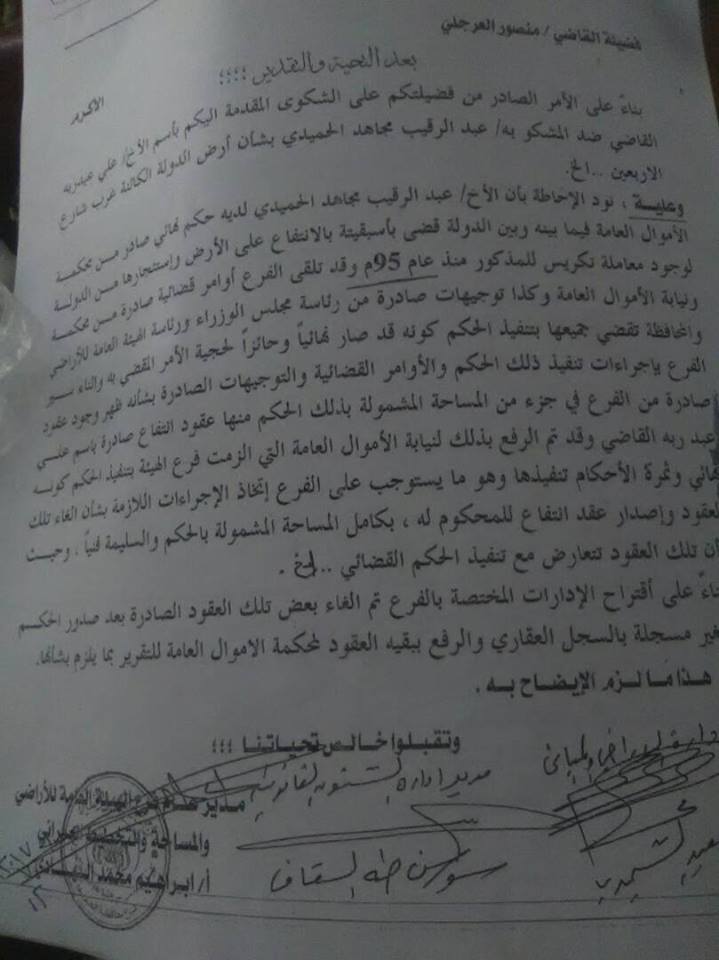 فضيلة القاضي / منصور العرجلي
الاكرم
بعد التحية والتقدير ؛؛؛؛
بناءً على الأمر الصادر من فضيلتكم على الشكوى المقدمة اليكم بأسم الأخ/ علي عبدربه
القاضي ضد المشكو به/ عبد الرقيب مجاهد الحميدي بشأن أرض الدولة الكائنة غرب شارع
الاربعين ...الخ.
وعليــة ، نود الإحاطة بأن الأخ/ عبد الرقيب مجاهد الحميدي لديه حكم نهائي صادر من محكمة
الأموال العامة فيما بينه وبين الدولة قضى بأسبقيتة بالانتفاع على الأرض وإستئجارها من الدولة
لوجود معاملة تكريس للمذكور منذ عام 95م وقد تلقى الفرع أوامر قضائية صادرة من محكمة
ونيابة الأموال العامة وكذا توجيهات صادرة من رئاسة مجلس الوزراء ورئاسة الهيئة العامة للأراضي
والمحافظة تقضي جميعها بتنفيذ الحكم كونه قد صار نهائياً وحائزاً لحجية الأمر المقضي به واثناء سير
الفرع بإجراءات تنفيذ ذلك الحكم والأوامر القضائية والتوجيهات الصادرة بشأنه ظهر وجود عقود
صادرة من الفرع في جزء من المساحة المشمولة بذلك الحكم منها عقود انتفاع صادرة باسم علـي
عبد ربه القاضي وقد تم الرفع بذلك لنيابة الأموال العامة التي الزمت فرع الهيئة بتنفيذ الحكم كونـه
نهائي وثمرة الأحكام تنفيذها وهو ما يستوجب على الفرع إتخاذ الإجراءات اللازمة بشأن الغاء تلك
العقود وإصدار عقد انتفاع للمحكوم له ، بكامل المساحة المشمولة بالحكم والسليمة فنياً ، وحيث
أن تلك العقود تتعارض مع تنفيذ الحكم القضائي ...الخ .
بناءً على أقتراح الإدارات المختصة بالفرع تم الغاء بعض تلك العقود الصادرة بعد صدور الحكـم
غير مسجلة بالسجل العقاري والرفع ببقيه العقود لمحكمة الاموال العامة للتقرير بما يلزم بشأنها.
هذا ما لـزم الإيضاح بـه .
وتقبلوا خالص تحياتنا ؛؛؛
مدير ادارة الشئون القانونية
مدير عام فرع الهيئة العامة للأراضي
والمساحة والتخطيط العمراني
سوسن طه السقاف
أ/ ابراهيم محمد